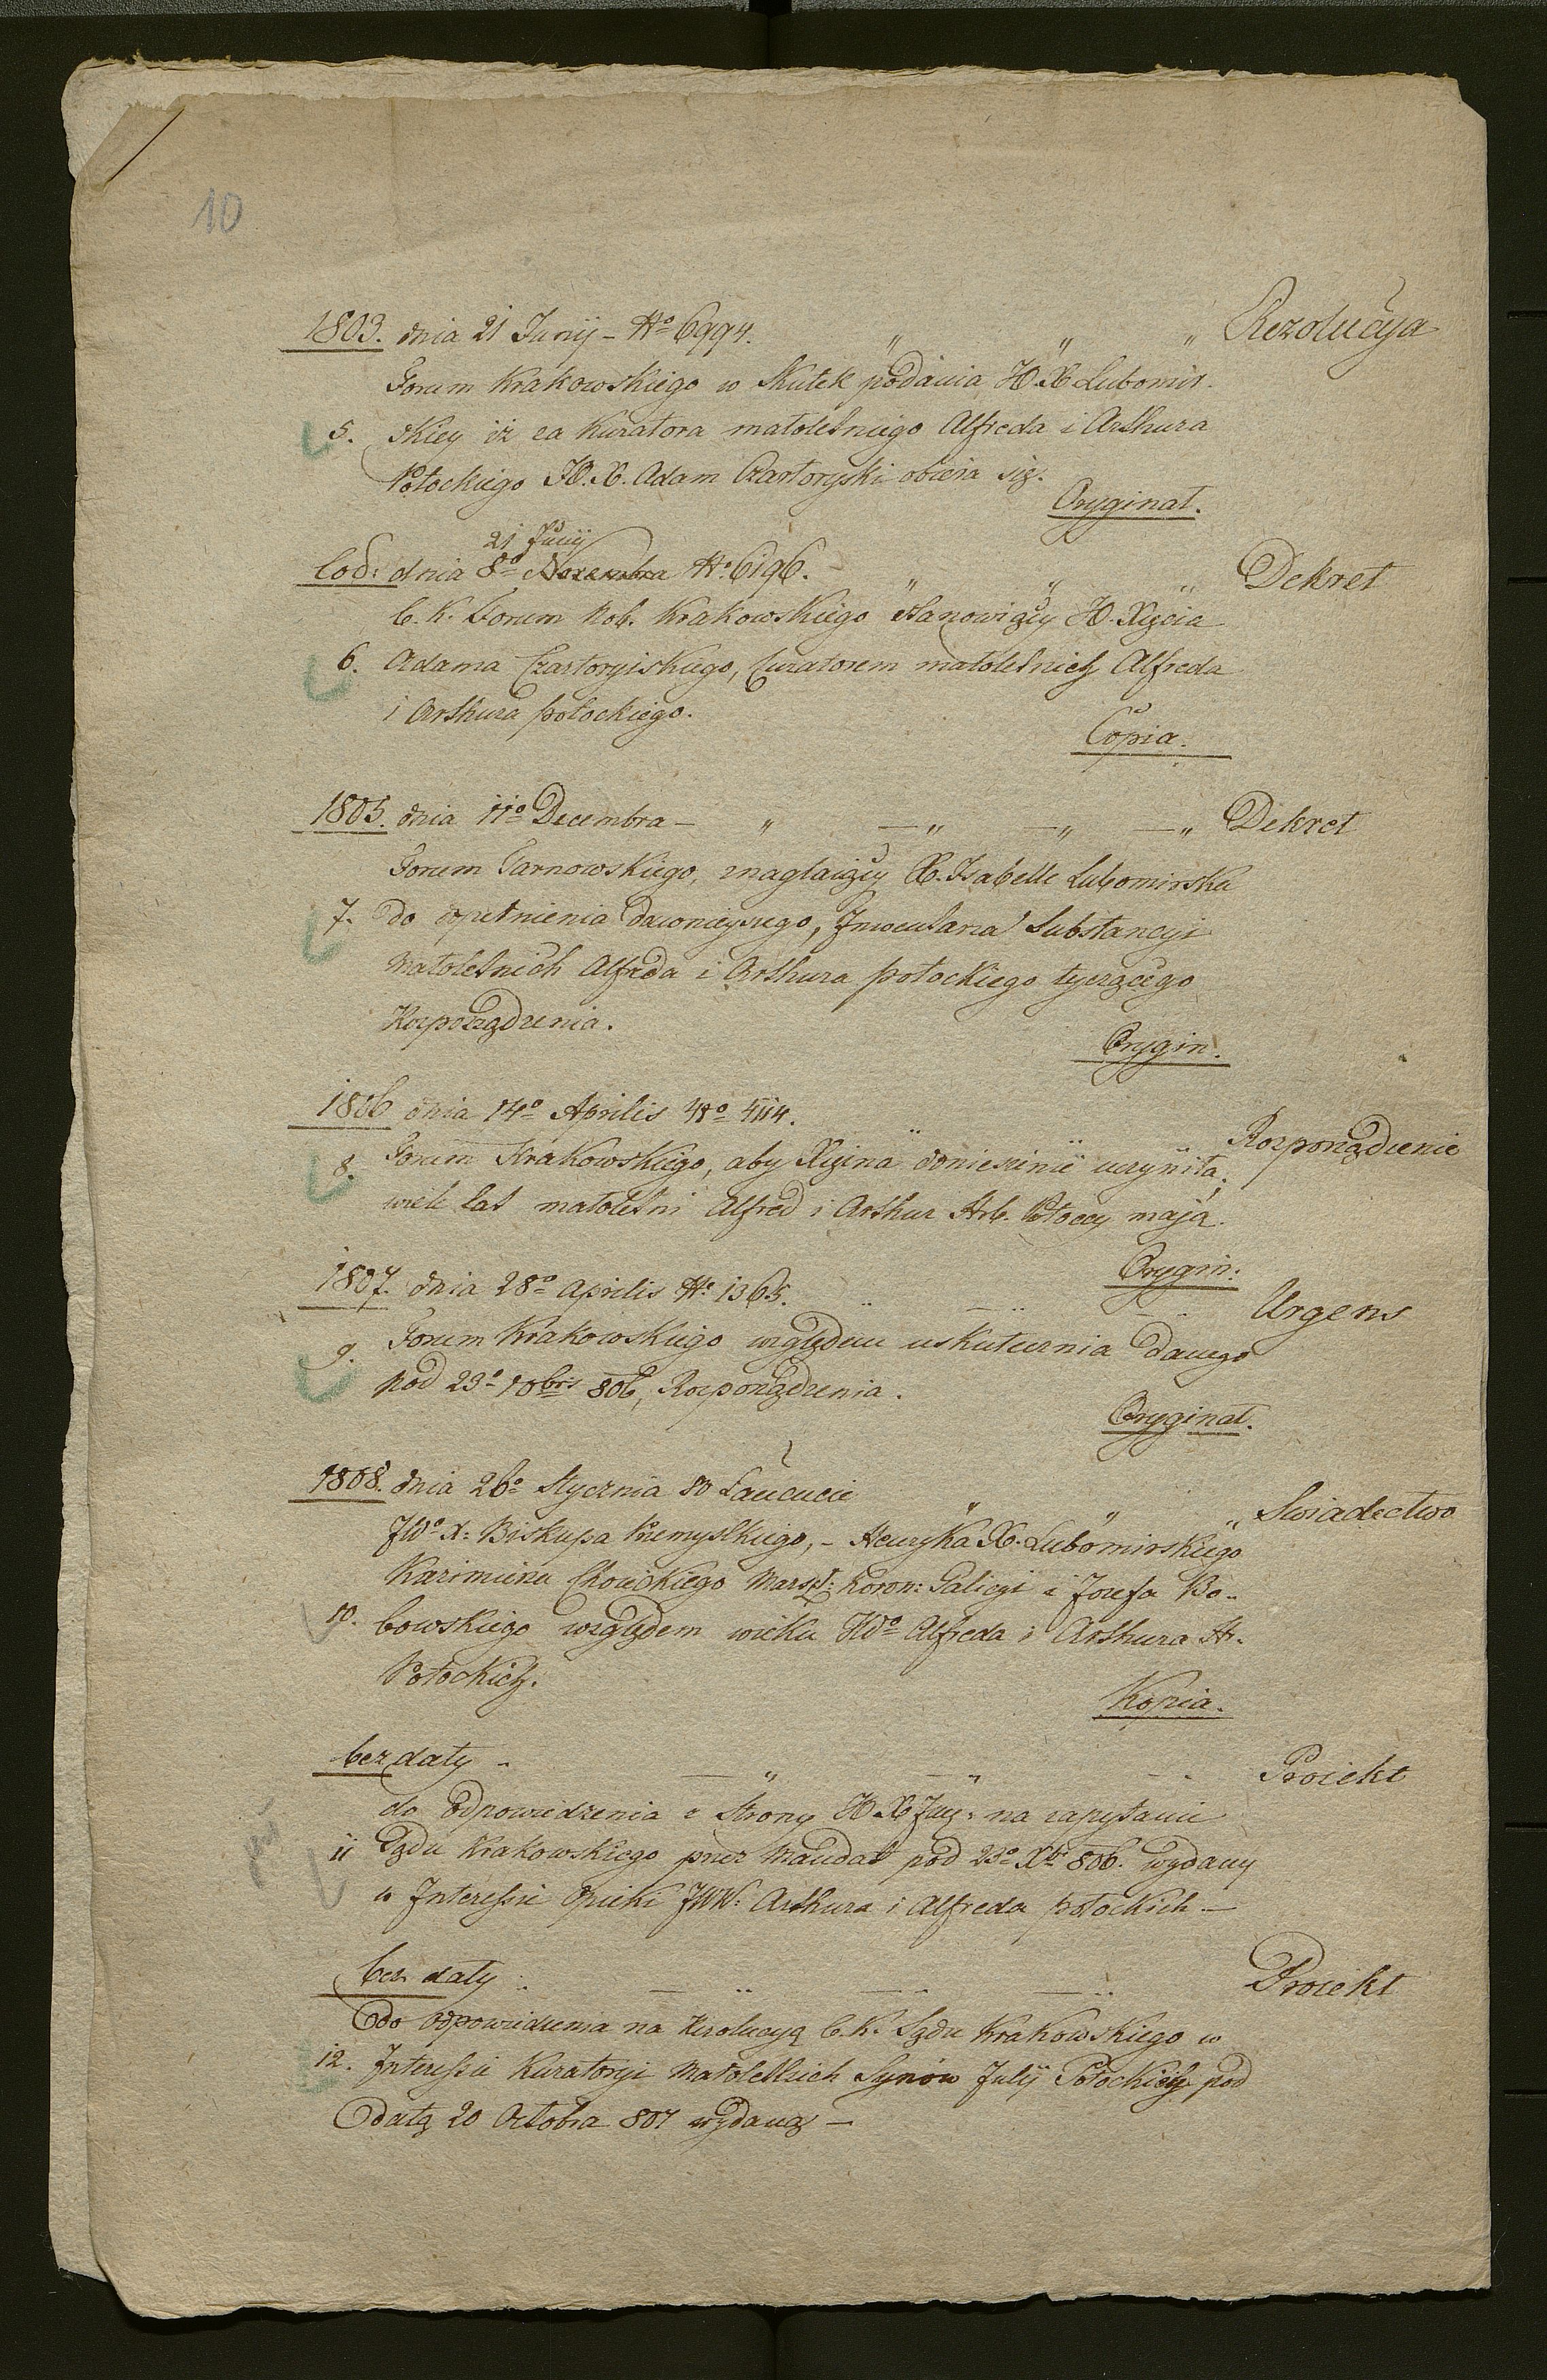 10
1803. dnia 21 Junij – No 6994. " " " Rezolucya
Forum Krakowskiego w Skutek podania J.O. X. Lubomir-
5. skiey iż za Kuratora małoletniego Alfreda i Arthura
Potockiego J.O. X. Adam Czartoryski obiera się.
Oryginał.
21 Junij
Eod: dnia 8o Novembra No 6196. " " " Dekret
C. K. Forum Nob. Krakowskiego stanowiący J.O. Xięcia
6. Adama Czartoryiskiego, Curatorem małoletnich Alfreda
i Arthura potockiego.
Copia.
1805. dnia 11o Decembra – " – " – " – " Dekret
Forum Tarnowskiego, znaglaiący X. Isabellę Lubomirską
7. do wypełnienia dawnieyszego, Inwentarza Substancyi
Małoletnich Alfreda i Arthura potockiego tyczącego
Rozporządzenia.
Orygin.
1806 dnia 14o Aprilis No 4114. " " Rozporządzenie
8. Forum Krakowskiego, aby Xiężna doniesienie uczyniła,
wiele lat małoletni Alfred i Arthur Hrb. Potoccy mają.
Orygin:
1807. dnia 28o Aprilis No 1365. " – " – " Urgens
9. Forum Krakowskiego względem uskutecznia danego
pod 23o 10bris 806, Rozporządzenia.
Oryginał.
1808. dnia 26o Stycznia w Łańcucie " " " Swiadectwo
JWo X: Biskupa Przemyslkiego, – Henryka X. Lubomirskiego
Kazimierza Chołoniewskiego Marszł: Koron: Galicyi i Jozefa Bo-
10. bowskiego względem wieku JWo Alfreda i Arthura Hr.
Potockich.
Kopia.
bez daty – – " – " – " Proiekt
do odpowiedzenia z Strony J.O. X Jmci na zapytanie
11 Sądu Krakowskiego przez Mandat pod 23o Xbr 806. wydany
w Interessie Opieki JWW: Arthura i Alfreda potockich –
bez daty – " – " – " Proiekt
do odpowiedzenia na Rezolucyą C. K. Sądu Krakowskiego w
12. Interessie Kuratoryi Małoletnich Synów Julij Potockiey pod
datą 20 Octobra 807 wydaną –